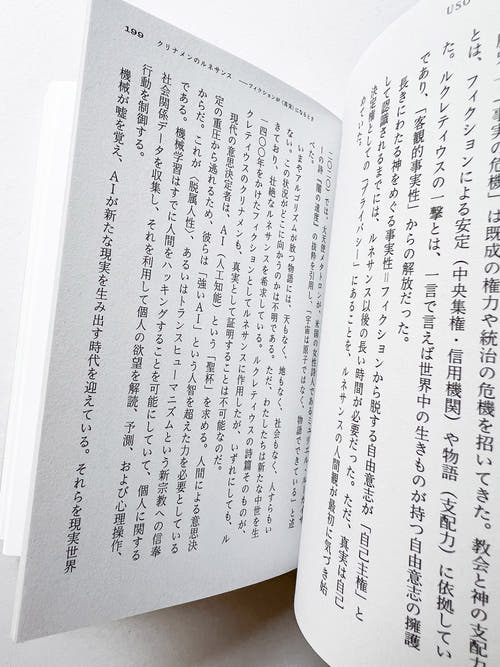 USO
「事実の危機」は既成の権力や統治の危機を招いてきた。教会と神の支配
とは、フィクションによる安定（中央集権・信用機関）や物語（支配力）に依拠してい
た。ルクレティウスの一撃とは、一言で言えば世界中の生きものが持つ自由意志の擁護
であり、「客観的事実性」からの解放だった。
長きにわたる神をめぐる事実性＝フィクションから脱する自由意志が「自己主権」と
して認識されるまでには、ルネサンス以後の長い時間が必要だった。ただ、真実は自己
決定権としての「プライバシー」にあることを、ルネサンスの人間観が最初に気づき始
めていた。
199
クリナメンのルネサンス ——フィクションが〈真実〉になるとき
二〇二〇）では、大天使メタトロンが、米国の女性詩人である
ーの詩「闇の速度」の抜粋を引用し、「宇宙は原子ではなく、物語でできている」と述
べた。
いまやアルゴリズムが放つ物語には、天もなく、地もなく、社会もなく、人すらもい
ない。この状況がどこに向かうのかは不明である。ただ、わたしたちは新たな中世を生
きており、壮絶なルネサンスを希求している。ルクレティウスの詩篇そのものが、
一四〇〇年をかけたフィクションとしてルネサンスに作用したが、いずれにしても、ル
クレティウスのクリナメンも、真実として証明することは不可能なのだ。
現代の意思決定者は、AI（人工知能）という「聖杯」を求める。人間による意思決
定の重圧から逃れるため、彼らは「強いAI」という人智を超えた力を必要としている
からだ。これが〈脱属人性〉、あるいはトランスヒューマニズムという新宗教への信奉
である。機械学習はすでに人間をハッキングすることを可能にしていて、個人に関する
社会関係データを収集し、それを利用して個人の欲望を解読、予測、および心理操作、
行動を制御する。
機械が嘘を覚え、AIが新たな現実を生み出す時代を迎えている。それらを現実世界